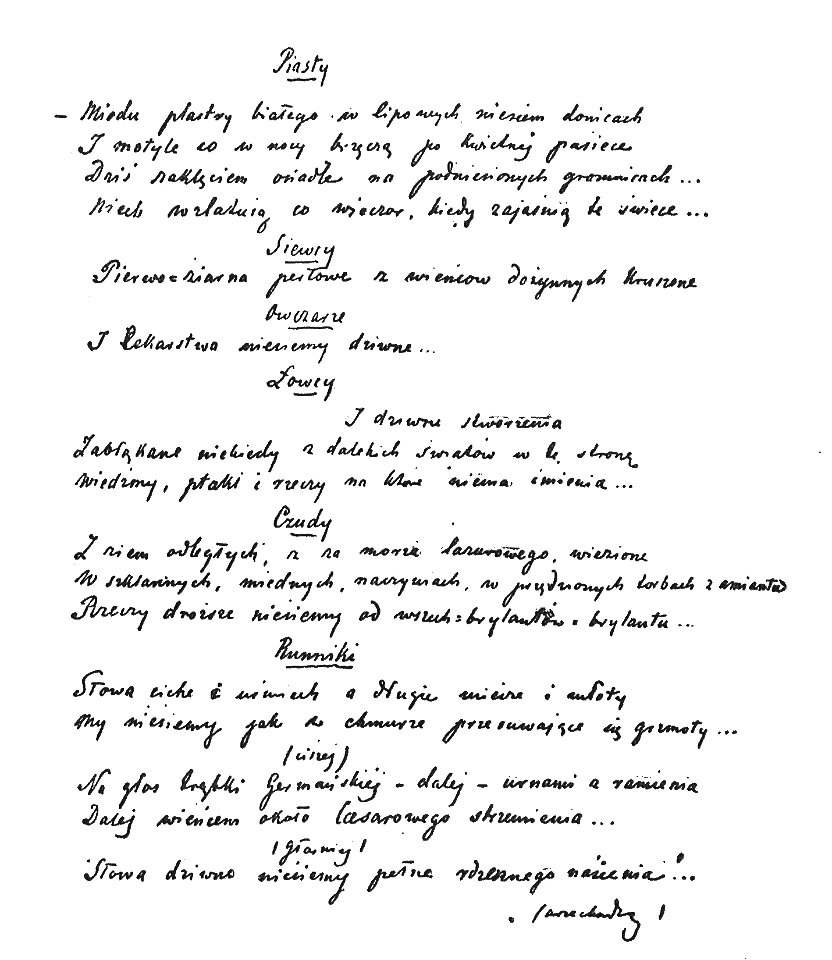 Piasty
– Miodu plastry białego w lipowych niesiem donicach
I motyle co w nocy brzęczą po kwietnej pasiece
Dziś zaklęciem osiadłe na podniesionych gromnicach...
Niech wzlatują co wieczor, kiedy zajaśnią te świece...
Siewcy
Pierwo=ziarna perłowe z wieńcow dożynnych kruszone
Owczarze
I Lekarstwa niesiemy dziwne...
Łowcy
I dziwne stworzenia
Zabłąkane niekiedy z dalekich światów w tę stronę
Wiedźmy, ptaki i rzeczy na które niema imienia...
Czudy
Z ziem odległych, z za morza lazurowego, wiezione
W szklannych, miednych, naczyniach, w przędzonych torbach z amiantu
Rzeczy droższe niesiemy od wszech=brylantów=brylantu...
Runniki
Słowa ciche i uśmiech a długie miecze i młoty
My niesiemy jak w chmurze przesuwające się grzmoty...
(ciszej)
Na głos trąbki Germańskiej – dalej – urnami z ramienia
Dalej wieńcem około Cesarowego strzemienia...
(głośniej)
Słowa dziwno niesiemy pełne rdzennego nasienia!...
(przechodzą)